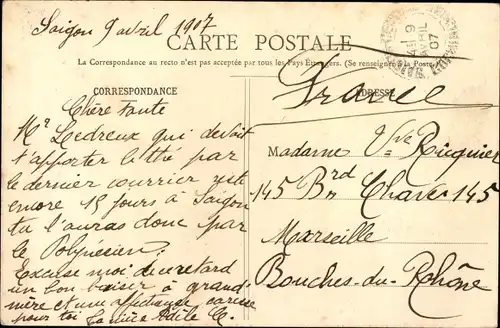 Saigon 9 avril 1907
CARTE POSTALE
La Correspondance au recto n'est pas acceptée par tous les Pays Étrangers. (Se renseigner à la Poste)
CORRESPONDANCE
ADRESSE
France
Chère Tante
Mr Ledreux qui devait
t'apporter l' thé par
le dernier courrier reste
encore 15 jours à Saigon
tu l'auras donc par
le Polynésien.
Excuse moi de ce retard
un bon baiser à grand'
mère et une affectueuse caresse
pour toi ta nièce Adèle
Madame Vve Ricquier
145 Brd Chave 145
Marseille
Bouches-du-Rhône
9
AVRIL
07